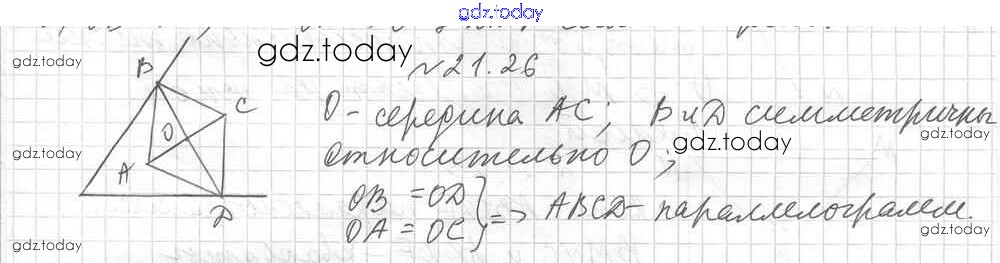 gdz.today
gdz.today
gdz.today
gdz.today
№21.26
B
C
O
A
D
O - середина AC; B и D симметричны
относительно O;
OB = OD
OA = OC
} => ABCD - параллелограмм.
gdz.today
gdz.today
gdz.today
gdz.today